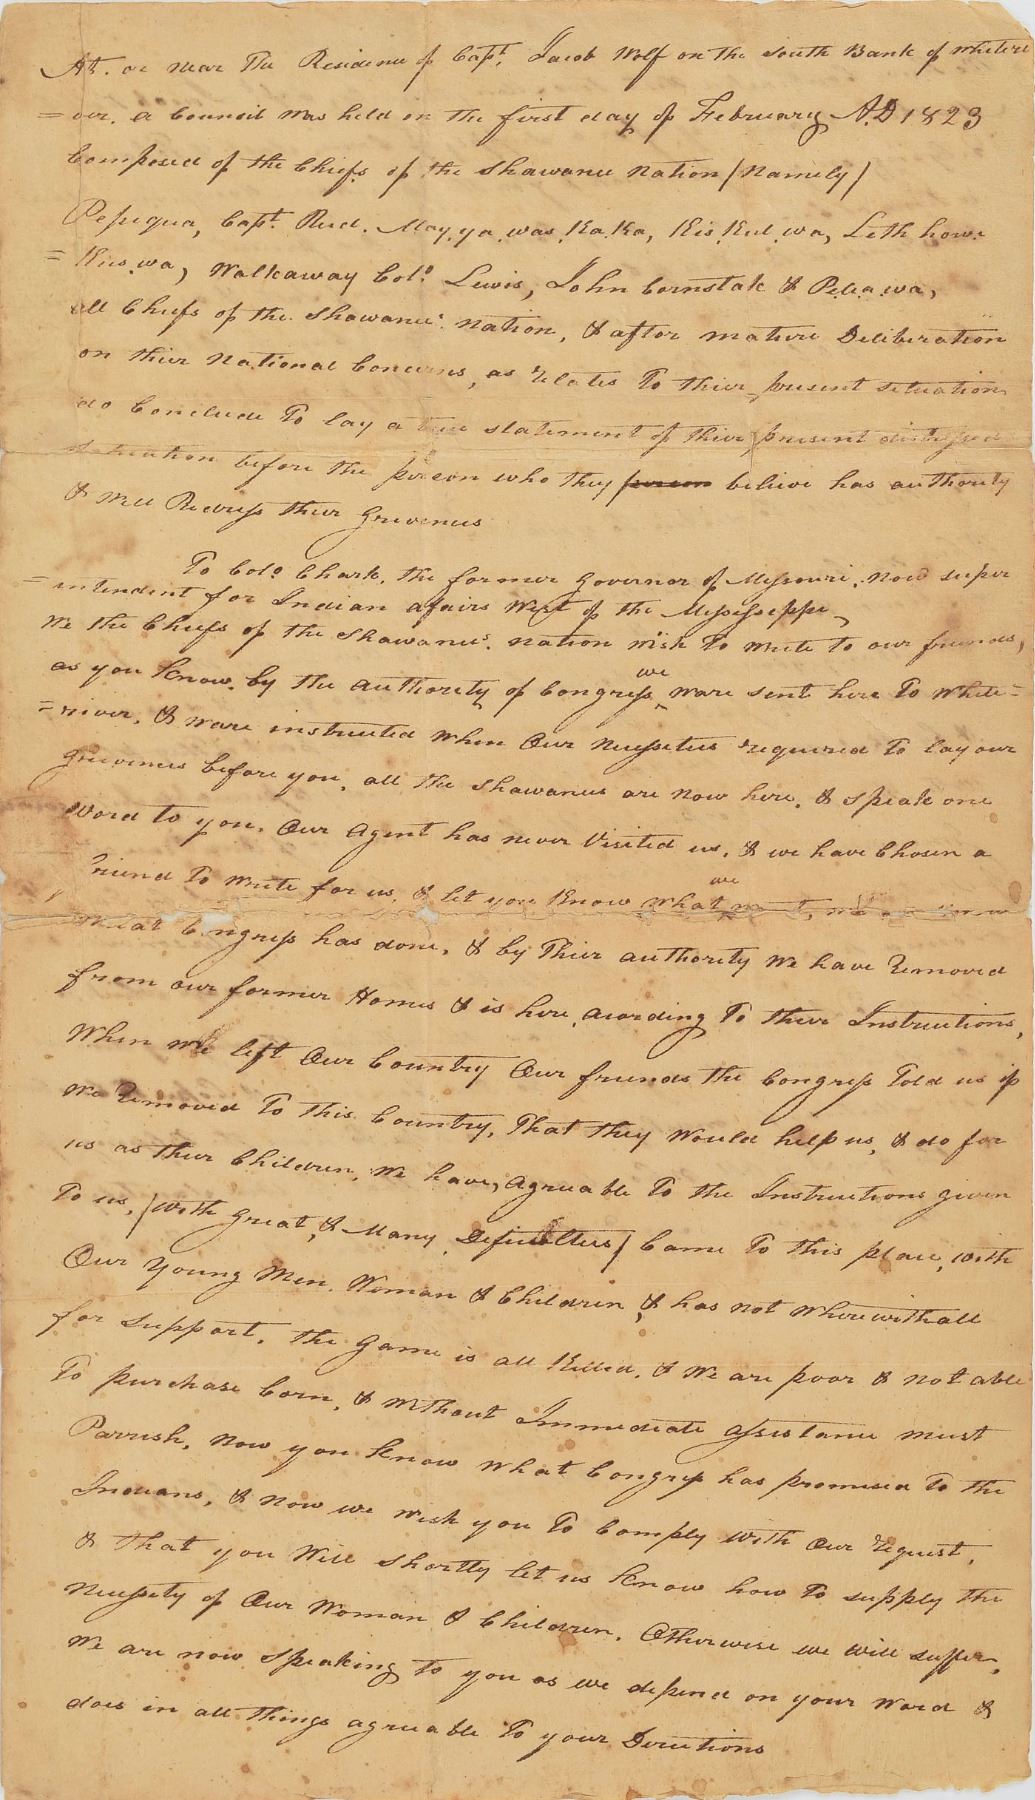 At. or near The Residence of Capt. Jacob Wolf on the south Bank of White
=ver. a Council was held on the first day of February A.D 1823
Composed of the Chiefs of the Shawanee Nation (Namily)
Pepiqua, Capt. Reed. May.ya.was.Ka.Ka, Kis.Kul.wa, Leth how.
=Kus.wa, Walkaway Colo. Lewis, John Cornstalk & Pelia.wa,
all Chiefs of the Shawanee Nation, & after mature Deliberation
on thier National Concerns, as relates To thier present situation
do Conclude To lay a true statement of thier present distressed
situation before the person who they person believe has authority
& will Redress their Grievences
To Colo. Clark, the former Governor of Missouri, now super
=intendent for Indian afairs West of the Mississeppi
We the Chiefs of the Shawanee nation wish To write to our friends,
as you Know. by the authority of Congress we ware sent here To White=
=river. & ware instructed when Our Necesseties required To lay our
grievences before you. all the Shawanees are now here. & speak one
word to you. Our agent has never Visited us. & we have Chosen a
friend To write for us. & let you Know what we want,
what Congress has done, & by Thier authority We have removed
from our former Homes & is here, acording To their Instructions,
When we left Our Country Our friends the Congress Told us if
We removed To this Country, That they would help us, & do for
us as their Children. We have, agreeable To the Instructions given
To us, (with great, & Many Deficulties) Came To this place, with
Our Young Men. Woman & Children, & has not wherewithall
for support. the game is all Killed. & We are poor & not able
To purchase Corn, & without Immediate assistance must
Parrish. Now you Know what Congress has promised To the
Indians, & now we wish you To Comply with Our request,
& that you will shortly let us Know how To supply the
Necessety of Our Woman & Children. Otherwise we will suffer,
We are now speaking To you as we depend on your word &
does in all things agreeable To your Directions